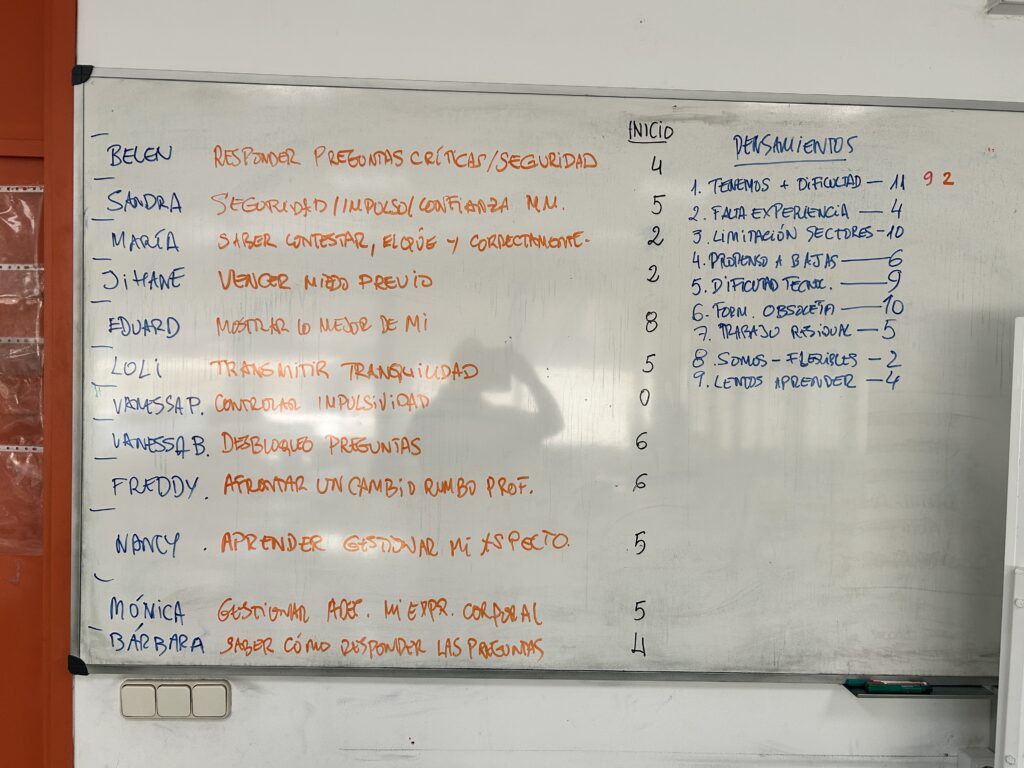 INICIO
BELEN RESPONDER PREGUNTAS CRÍTICAS/SEGURIDAD 4
SANDRA SEGURIDAD/IMPULSO/CONFIANZA M.M. 5
MARÍA SABER CONTESTAR, EL QÚE Y CORRECTAMENTE- 2
JIHANE VENCER MIEDO PREVIO 2
EDUARD MOSTRAR LO MEJOR DE MI 8
LOLI TRANSMITIR TRANQUILIDAD 5
VANESSA P. CONTROLAR IMPULSIVIDAD 0
VANESSA B. DESBLOQUEO PREGUNTAS 6
FREDDY. AFRONTAR UN CAMBIO RUMBO PROF. 6
NANCY. APRENDER GESTIONAR MI ASPECTO. 5
MÓNICA GESTIONAR ADEC. MI EXPR. CORPORAL 5
BÁRBARA SABER CÓMO RESPONDER LAS PREGUNTAS 4
PENSAMIENTOS
1. TENEMOS + DIFICULTAD — 11 9 2
2. FALTA EXPERIENCIA — 4
3. LIMITACIÓN SECTORES - 10
4. PROPENSO A BAJAS — 6
5. DIFICULTAD TECNOL. — 9
6. FORM. OBSOLETA — 10
7. TRABAJO RESIDUAL — 5
8. SOMOS - FLEXIBLES — 2
9. LENTOS APRENDER — 4